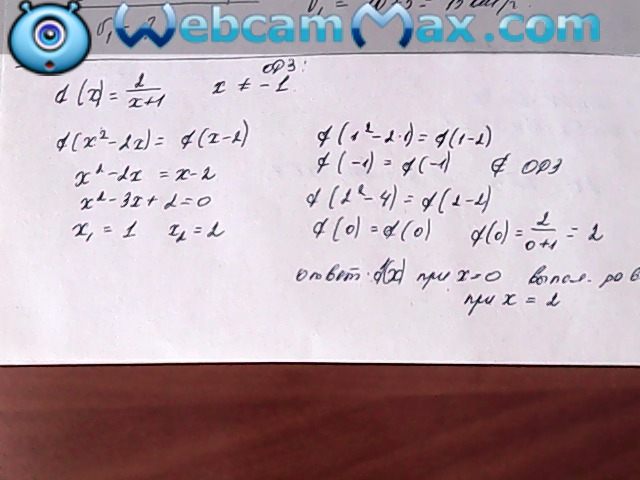 WebcamMax.com
ОДЗ:
f(x) = 2/(x+1) x ≠ -1
f(x²-2x) = f(x-2)
x²-2x = x-2
x²-3x+2=0
x₁ = 1 x₂ = 2
f(1²-2·1) = f(1-2)
f(-1) = f(-1) ∉ ОДЗ
f(2²-4) = f(2-2)
f(0) = f(0) f(0) = 2/(0+1) = 2
ответ: f(x) при x=0
при x = 2